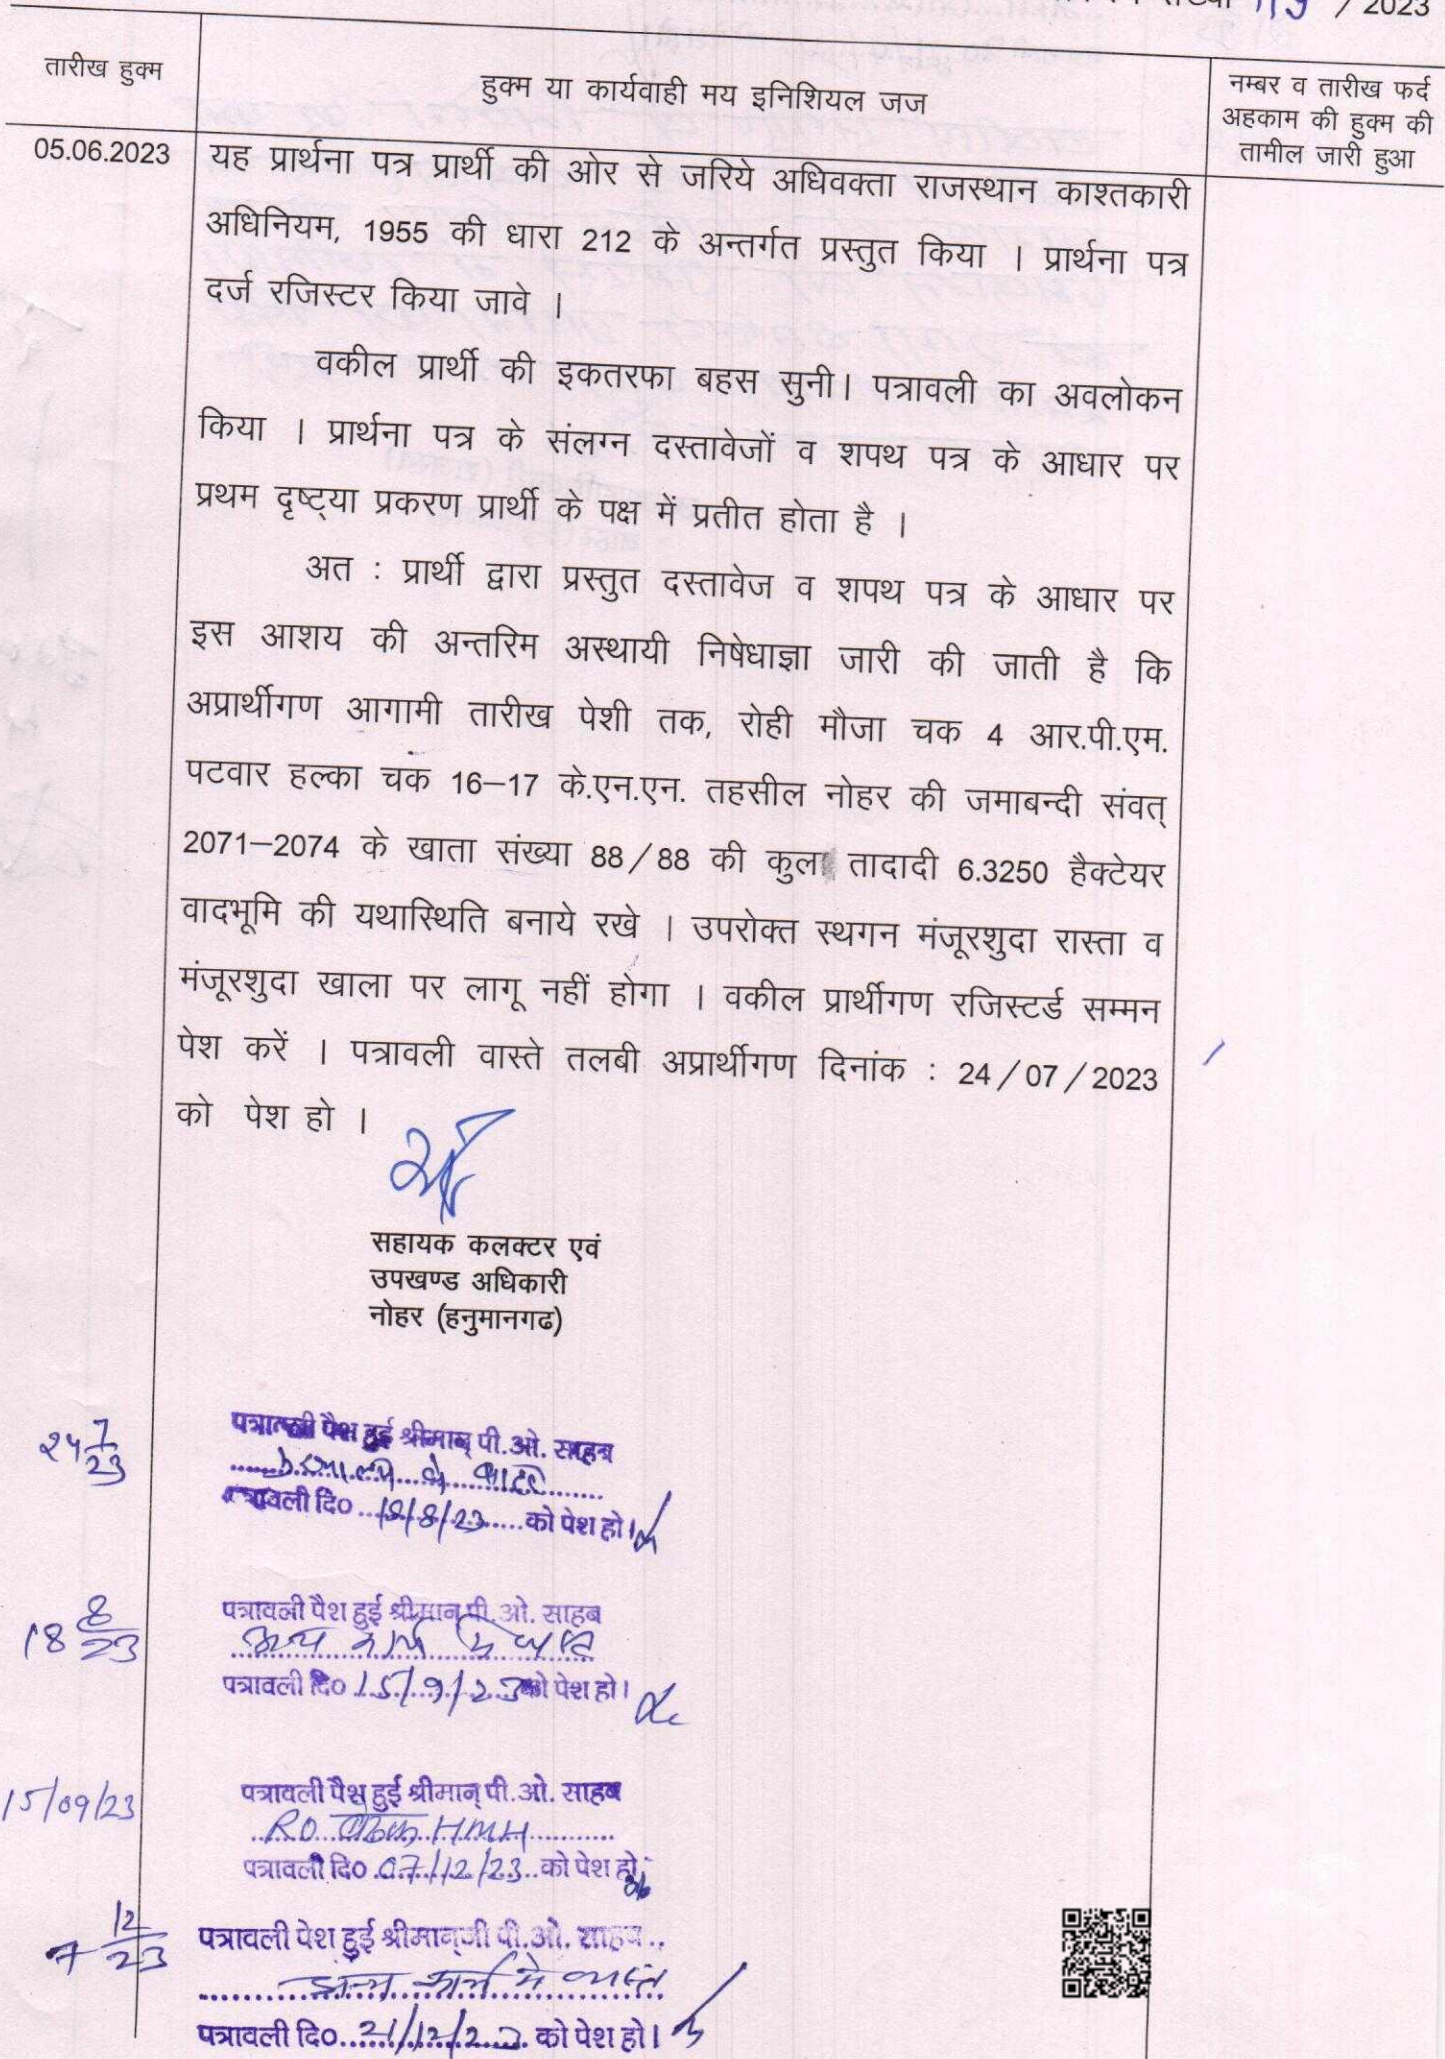 / 2023
तारीख हुक्म
हुक्म या कार्यवाही मय इनिशियल जज
नम्बर व तारीख फर्द
अहकाम की हुक्म की
तामील जारी हुआ
05.06.2023
यह प्रार्थना पत्र प्रार्थी की ओर से जरिये अधिवक्ता राजस्थान काश्तकारी
अधिनियम, 1955 की धारा 212 के अन्तर्गत प्रस्तुत किया । प्रार्थना पत्र
दर्ज रजिस्टर किया जावे ।
वकील प्रार्थी की इकतरफा बहस सुनी। पत्रावली का अवलोकन
किया । प्रार्थना पत्र के संलग्न दस्तावेजों व शपथ पत्र के आधार पर
प्रथम दृष्ट्या प्रकरण प्रार्थी के पक्ष में प्रतीत होता है ।
अत : प्रार्थी द्वारा प्रस्तुत दस्तावेज व शपथ पत्र के आधार पर
इस आशय की अन्तरिम अस्थायी निषेधाज्ञा जारी की जाती है कि
अप्रार्थीगण आगामी तारीख पेशी तक, रोही मौजा चक 4 आर.पी.एम.
पटवार हल्का चक 16–17 के.एन.एन. तहसील नोहर की जमाबन्दी संवत्
2071–2074 के खाता संख्या 88/88 की कुल तादादी 6.3250 हैक्टेयर
वादभूमि की यथास्थिति बनाये रखे । उपरोक्त स्थगन मंजूरशुदा रास्ता व
मंजूरशुदा खाला पर लागू नहीं होगा । वकील प्रार्थीगण रजिस्टर्ड सम्मन
पेश करें । पत्रावली वास्ते तलबी अप्रार्थीगण दिनांक : 24/07/2023
को पेश हो ।
सहायक कलक्टर एवं
उपखण्ड अधिकारी
नोहर (हनुमानगढ)
24 7/23
पत्रावली पैश हुई श्रीमान् पी.ओ. साहब
पत्रावली दि० 18/8/23 को पेश हो।
18 8/23
पत्रावली पैश हुई श्रीमान् पी.ओ. साहब
अन्य कार्य में व्यस्त
पत्रावली दि० 15/9/23 को पेश हो।
15/09/23
पत्रावली पैश हुई श्रीमान् पी.ओ. साहब
R.O. बैठक HMH
पत्रावली दि० 07/12/23 को पेश हो
7 12/23
पत्रावली पेश हुई श्रीमान्जी पी.ओ. साहब
अन्य कार्य में व्यस्त
पत्रावली दि० 21/12/23 को पेश हो।